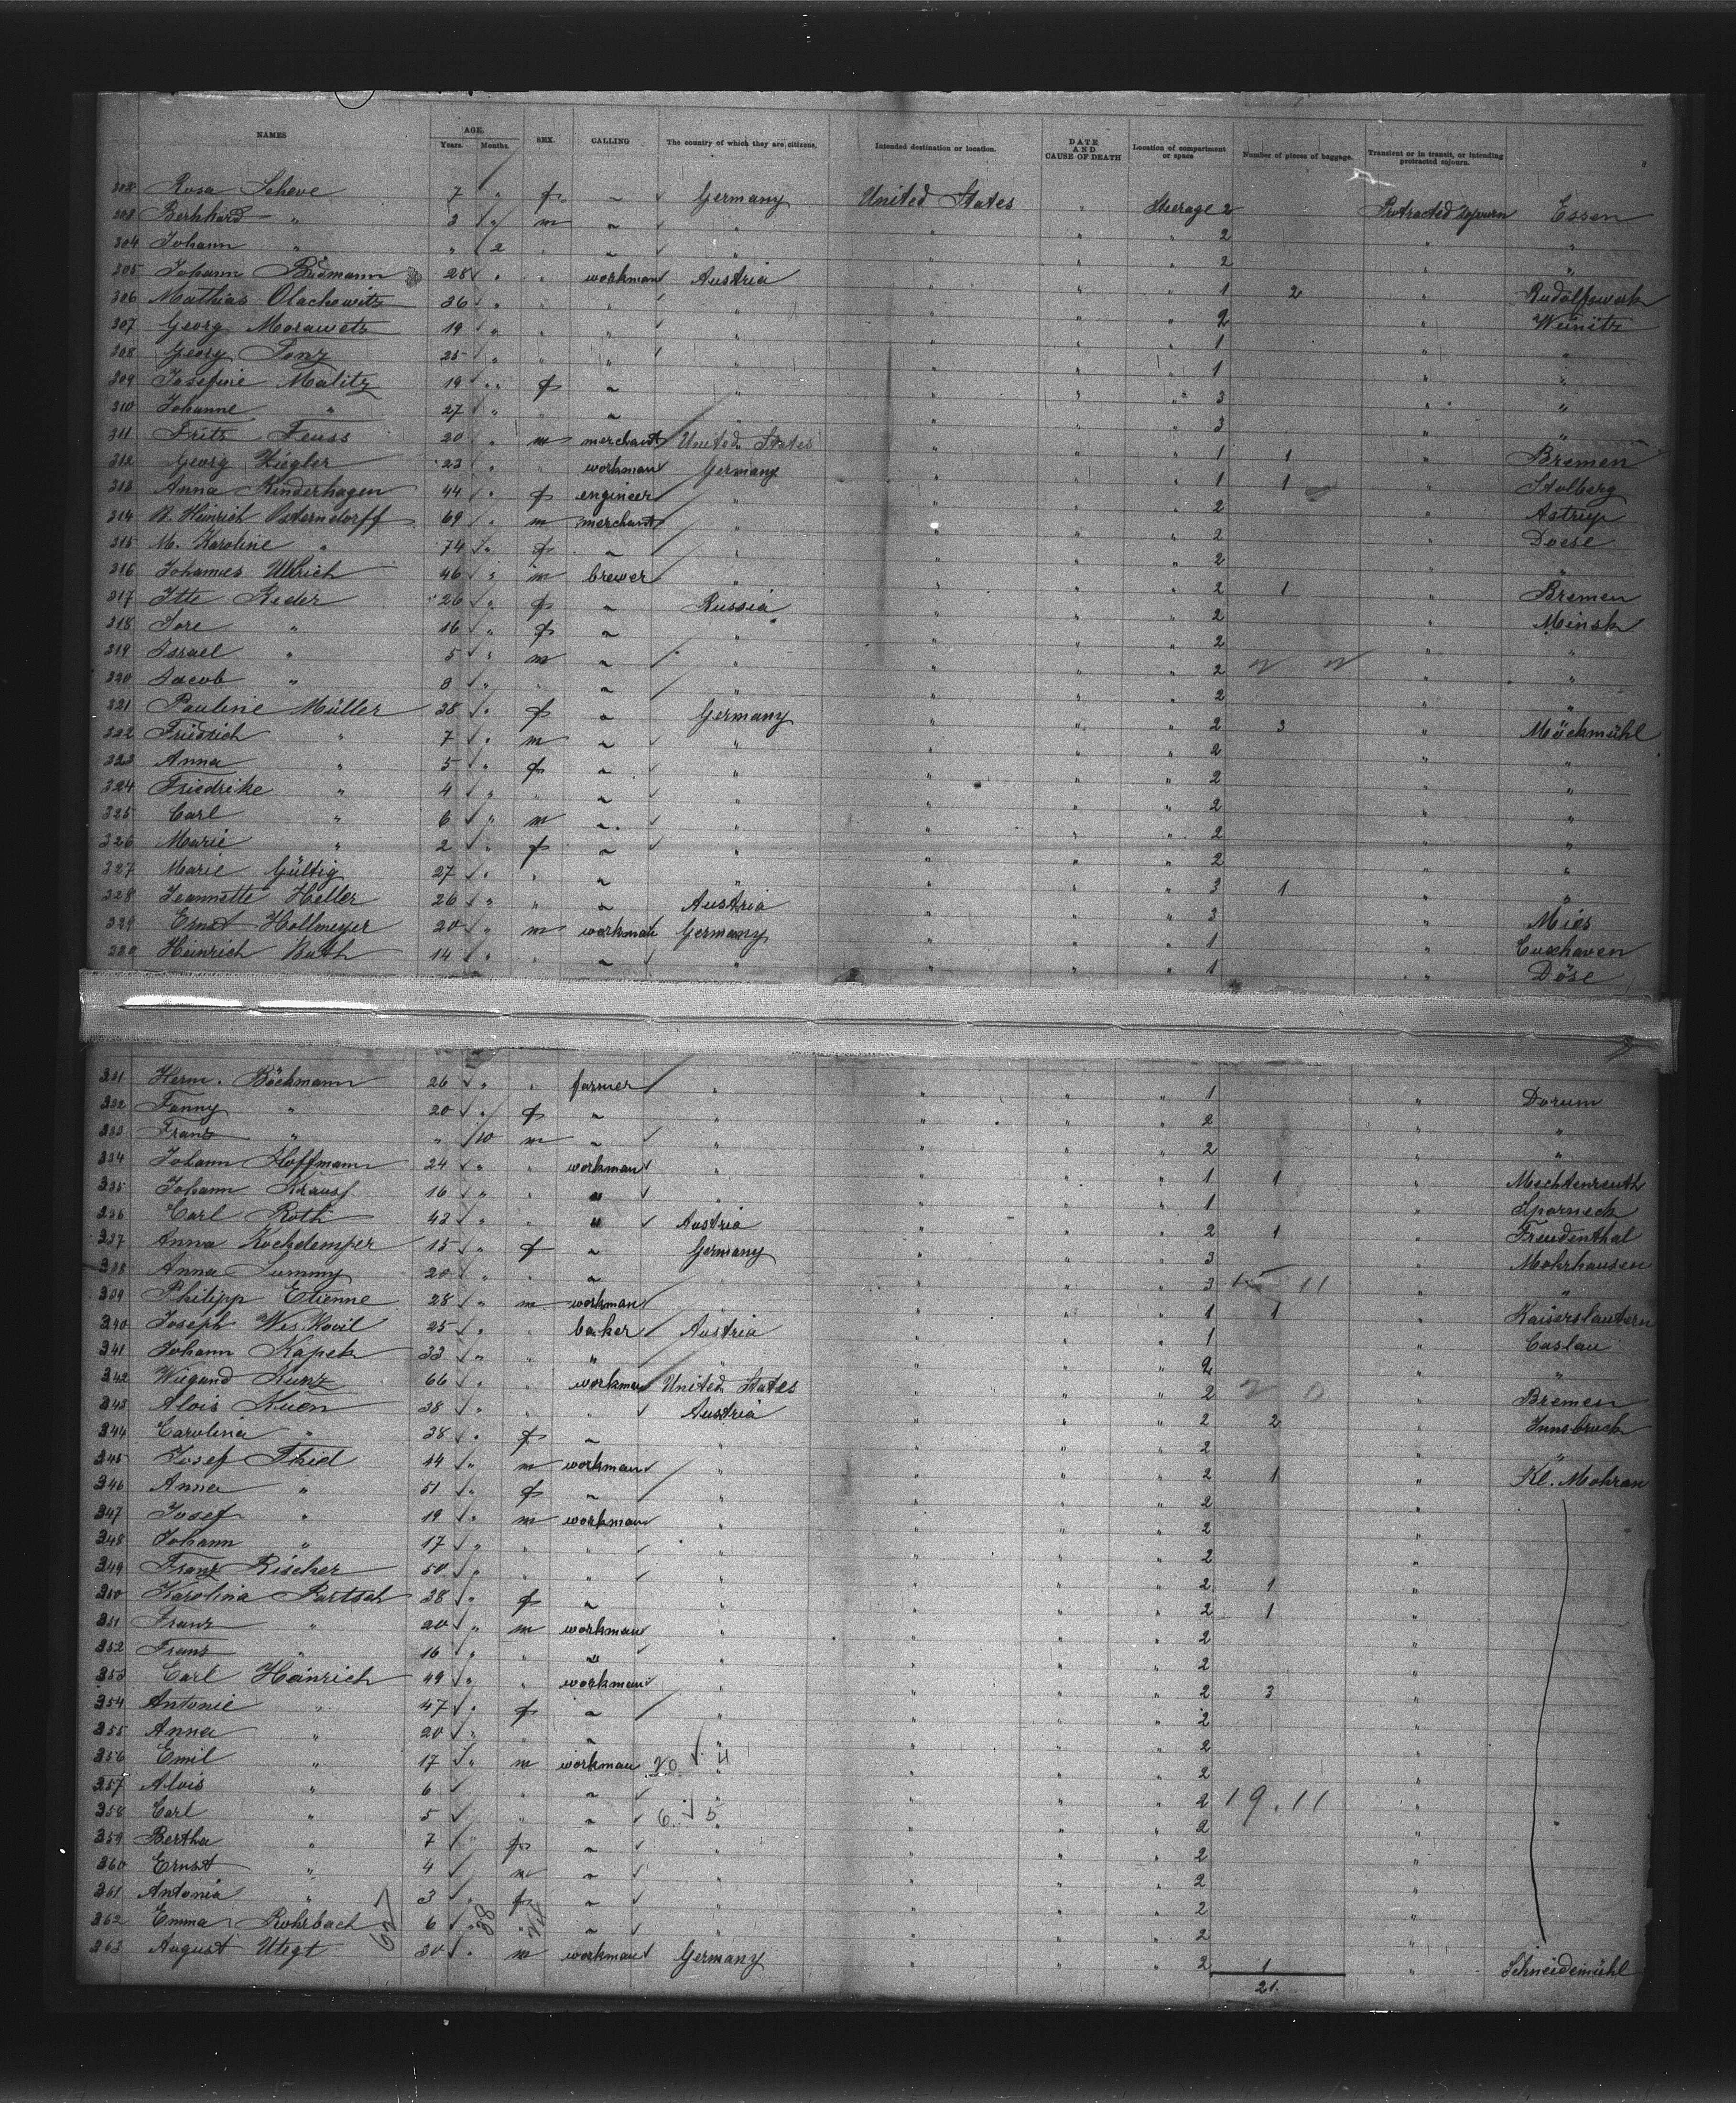 NAMES AGE. Years. Months. SEX. CALLING The country of which they are citizens. Intended destination or location. DATE AND CAUSE OF DEATH Location of compartment or space Number of pieces of baggage. Transient or in transit, or intending protracted sojourn.
Rosa Scheve 7 " f ~ Germany United States " Steerage 2 Protracted Sojourn Essen
Bernhard " 3 " m ~ " " " " 2 " "
304 Johann " " 2 " ~ " " " " 2 " "
305 Johann 28 " " workman Austria " " " 1 2 " Rudolfswerk
306 Mathias Olachowitz 36 " " " " " " " 2 " Weinitz
307 Georg Morawetz 19 " " " " " " " 1 " "
308 Georg 25 " " " " " " " 1 " "
309 Josefine Malitz 19 " f ~ " " " " 3 " "
310 Johanne " 27 " " ~ " " " " 3 " "
311 Fritz Feuss 20 " m merchant United States " " " 1 1 " Bremen
312 Georg Ziegler 23 " " workman Germany " " " 1 1 " Stolberg
313 Anna Kinderhagen 44 " f engineer " " " " 2 " Astrup
314 H. Heinrich Osterndorff 69 " m merchant " " " " 2 " Doese
315 M. Karoline " 74 " f ~ " " " " 2 " "
316 Johannes Ullrich 46 " m brewer " " " " 2 1 " Bremen
317 Itte Reder 26 " f ~ Russia " " " 2 " Minsk
318 Sore " 16 " f ~ " " " " 2 " "
319 Israel " 5 " m ~ " " " " 2 " "
320 Jacob " 3 " " ~ " " " " 2 " "
321 Pauline Müller 38 " f ~ Germany " " " 2 3 " Möckmühl
322 Friedrich " 7 " m ~ " " " " 2 " "
323 Anna " 5 " f ~ " " " " 2 " "
324 Friedrike " 4 " " ~ " " " " 2 " "
325 Carl " 6 " m ~ " " " " 2 " "
326 Marie " 2 " f ~ " " " " 2 " "
327 Marie Gültig 27 " " ~ " " " " 3 1 " "
328 Jeannette Heller 26 " " ~ Austria " " " 3 " Mies
329 Ernst Hollmeyer 20 " m workman Germany " " " 1 " Cuxhaven
330 Heinrich 14 " " ~ " " " " 1 " Döse
331 Herm. Böckmann 26 " " farmer " " " " 1 " Dorum
332 Fanny " 20 " f ~ " " " " 2 " "
333 Franz " " 10 m ~ " " " " 2 " "
334 Johann Hoffmann 24 " " workman " " " " 1 1 " Mechtenreuth
335 Johann Krauss 16 " " " " " " " 1 " Sparneck
336 Carl Roth 43 " " " Austria " " " 2 1 " Freudenthal
337 Anna Kochdemper 15 " f ~ Germany " " " 3 " Mohrhausen
338 Anna Summy 20 " " ~ " " " " 3 11 " "
339 Philipp Etienne 28 " m workman " " " " 1 1 " Kaiserslautern
340 Joseph Wes.Kovil 25 " " baker Austria " " " 1 " Caslau
341 Johann Kapek 33 " " " " " " " 2 " "
342 Wiegand Kunz 66 " " workman United States " " " 2 " Bremen
343 Alois Kuen 38 " " " Austria " " " 2 2 " Innsbruck
344 Carolina " 38 " f ~ " " " " 2 " "
345 Josef Thiel 44 " m workman " " " " 2 1 " Kl. Mohrau
346 Anna " 51 " f ~ " " " " 2 "
347 Josef " 19 " m workman " " " " 2 "
348 Johann " 17 " " " " " " " 2 "
349 Franz Rischer 50 " " " " " " " 2 1 "
350 Karolina Partsch 38 " f ~ " " " " 2 1 "
351 Franz " 20 " m workman " " " " 2 "
352 Franz " 16 " " " " " " " 2 "
353 Carl Heinrich 49 " " workman " " " " 2 3 "
354 Antonie " 47 " f ~ " " " " 2 "
355 Anna " 20 " " ~ " " " " 2 "
356 Emil " 17 " m workman 20 " " " " 2 "
357 Alois " 6 " ~ " " " " 2 19.11 "
358 Carl " 5 " ~ 6 5 " " " 2 "
359 Bertha " 7 " f ~ " " " " 2 "
360 Ernst " 4 m ~ " " " " 2 "
361 Antonia " 3 " f ~ " " " " 2 "
362 Emma Rohrbach 6 " " ~ " " " " 2 "
363 August Utegt 30 " m workman Germany " " " 2 1 " Schneidemühl
627 38
21.